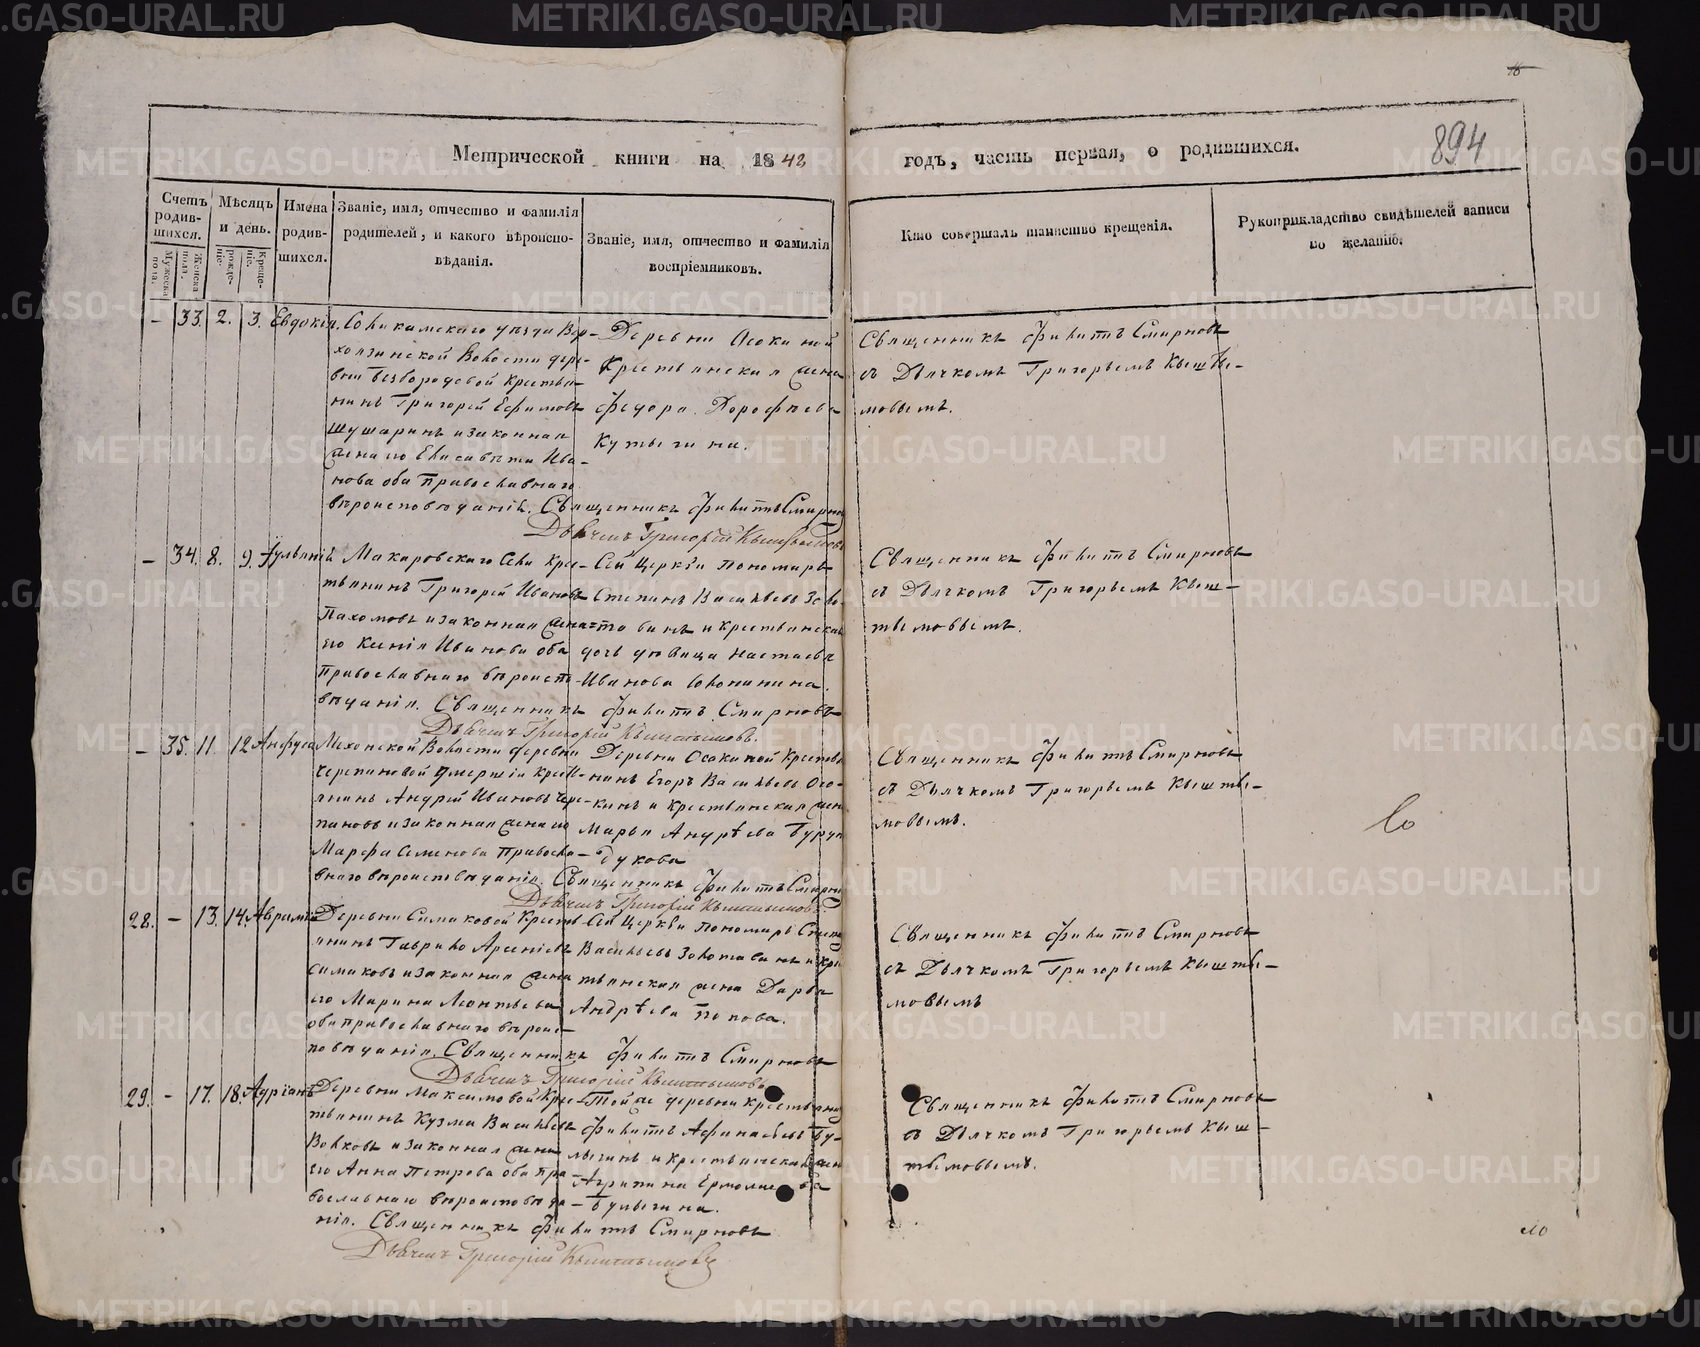 Метрической книги на 1842
годъ, часть первая, о родившихся.
894
Счетъ родив-
шихся.
Мужеска
пола.
Женска
пола.
Мѣсяцъ
и день.
рожде-
нiе.
Креще-
нiе.
Имена
родив-
шихся.
Званiе, имя, отчество и фамилiя
родителей, и какого вѣроиспо-
вѣданiя.
Званiе, имя, отчество и фамилiя
воспрiемниковъ.
Кто совершалъ таинство крещенiя.
Рукоприкладство свидѣтелей записи
по желанiю.
– 33. 2. 3. Евдокiя.
Соликамскаго уѣзда Вер-
холзинской Волости дере-
вни Безбородовой крестья-
нинъ Григорiй Ефимовъ
Шушаринъ и законная
жена его Елисавѣта Ива-
нова оба православнаго
вѣроисповѣданiя. Священникъ Филиппъ Смирнов
Дьячекъ Григорiй Кыштымовъ
Деревни Осокиной
крестьянская жена
Федора Дорофѣева
Кутыгина.
Священникъ Филиппъ Смирновъ
съ Дьячкомъ Григорьемъ Кышты-
мовымъ.
– 34. 8. 9. Iулiянiя
Макаровскаго Села кре-
стьянинъ Григорiй Ивановъ
Пахомовъ и законная жена
его Ксенiя Иванова оба
православнаго вѣроиспо-
вѣданiя. Священникъ Филиппъ Смирновъ
Дьячекъ Григорiй Кыштымовъ.
Сей Церкви пономарь
Степанъ Васильевъ Золо-
тавинъ и крестьянская
дочь дѣвица Настасья
Иванова Солонинина.
Священникъ Филиппъ Смирновъ
съ Дьячкомъ Григорьемъ Кыш-
тымовымъ.
– 35. 11. 12. Анфуса
Мехонской Волости деревни
Черепановой умершiй кресть-
янинъ Андрiй Ивановъ Чере-
пановъ и законная жена его
Марфа Семенова правосла-
внаго вѣроисповѣданiя. Священникъ Филиппъ Смирнов
Дьячекъ Григорiй Кыштымовъ.
Деревни Осокиной крестья-
нинъ Егоръ Васильевъ Осо-
кинъ и крестьянская жена
Марья Андрѣева Бурун-
дукова
Священникъ Филиппъ Смирновъ
съ Дьячкомъ Григорьемъ Кышты-
мовымъ.
28. – 13. 14. Аврамiй
Деревни Симаковой Кресть-
янинъ Гаврило Арсенiевъ
Симаковъ и законная жена
его Марина Леонтьева
оба православнаго вѣроис-
повѣданiя. Священникъ Филиппъ Смирновъ
Дьячекъ Григорiй Кыштымовъ
Сей Церкви пономарь Степанъ
Васильевъ Золотавинъ и кре-
стьянская жена Дарья
Андрѣева Попова.
Священникъ Филиппъ Смирновъ
съ Дьячкомъ Григорьемъ Кышты-
мовымъ
29. – 17. 18. Адрiанъ
Деревни Максимовой Кре-
стьянинъ Кузма Васильевъ
Волковъ и законная жена
его Анна Петрова оба пра-
вославнаго вѣроисповѣда-
нiя. Священникъ Филиппъ Смирновъ
Дьячекъ Григорiй Кыштымовъ
Той же деревни крестьянинъ
Филиппъ Афанасьевъ Бу-
лыгинъ и крестьянская жена
Агрипина Ермолаева
Булыгина.
Священникъ Филиппъ Смирновъ
съ Дьячкомъ Григорьемъ Кыш-
тымовымъ.
METRIKI.GASO-URAL.RU